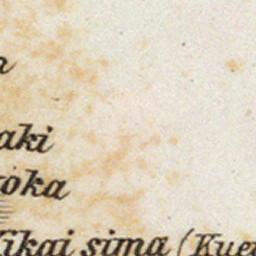 aki
oka
ikai sima (Kue